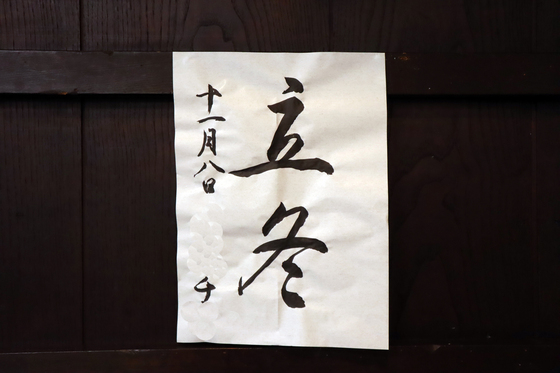 立冬
十一月八日
千